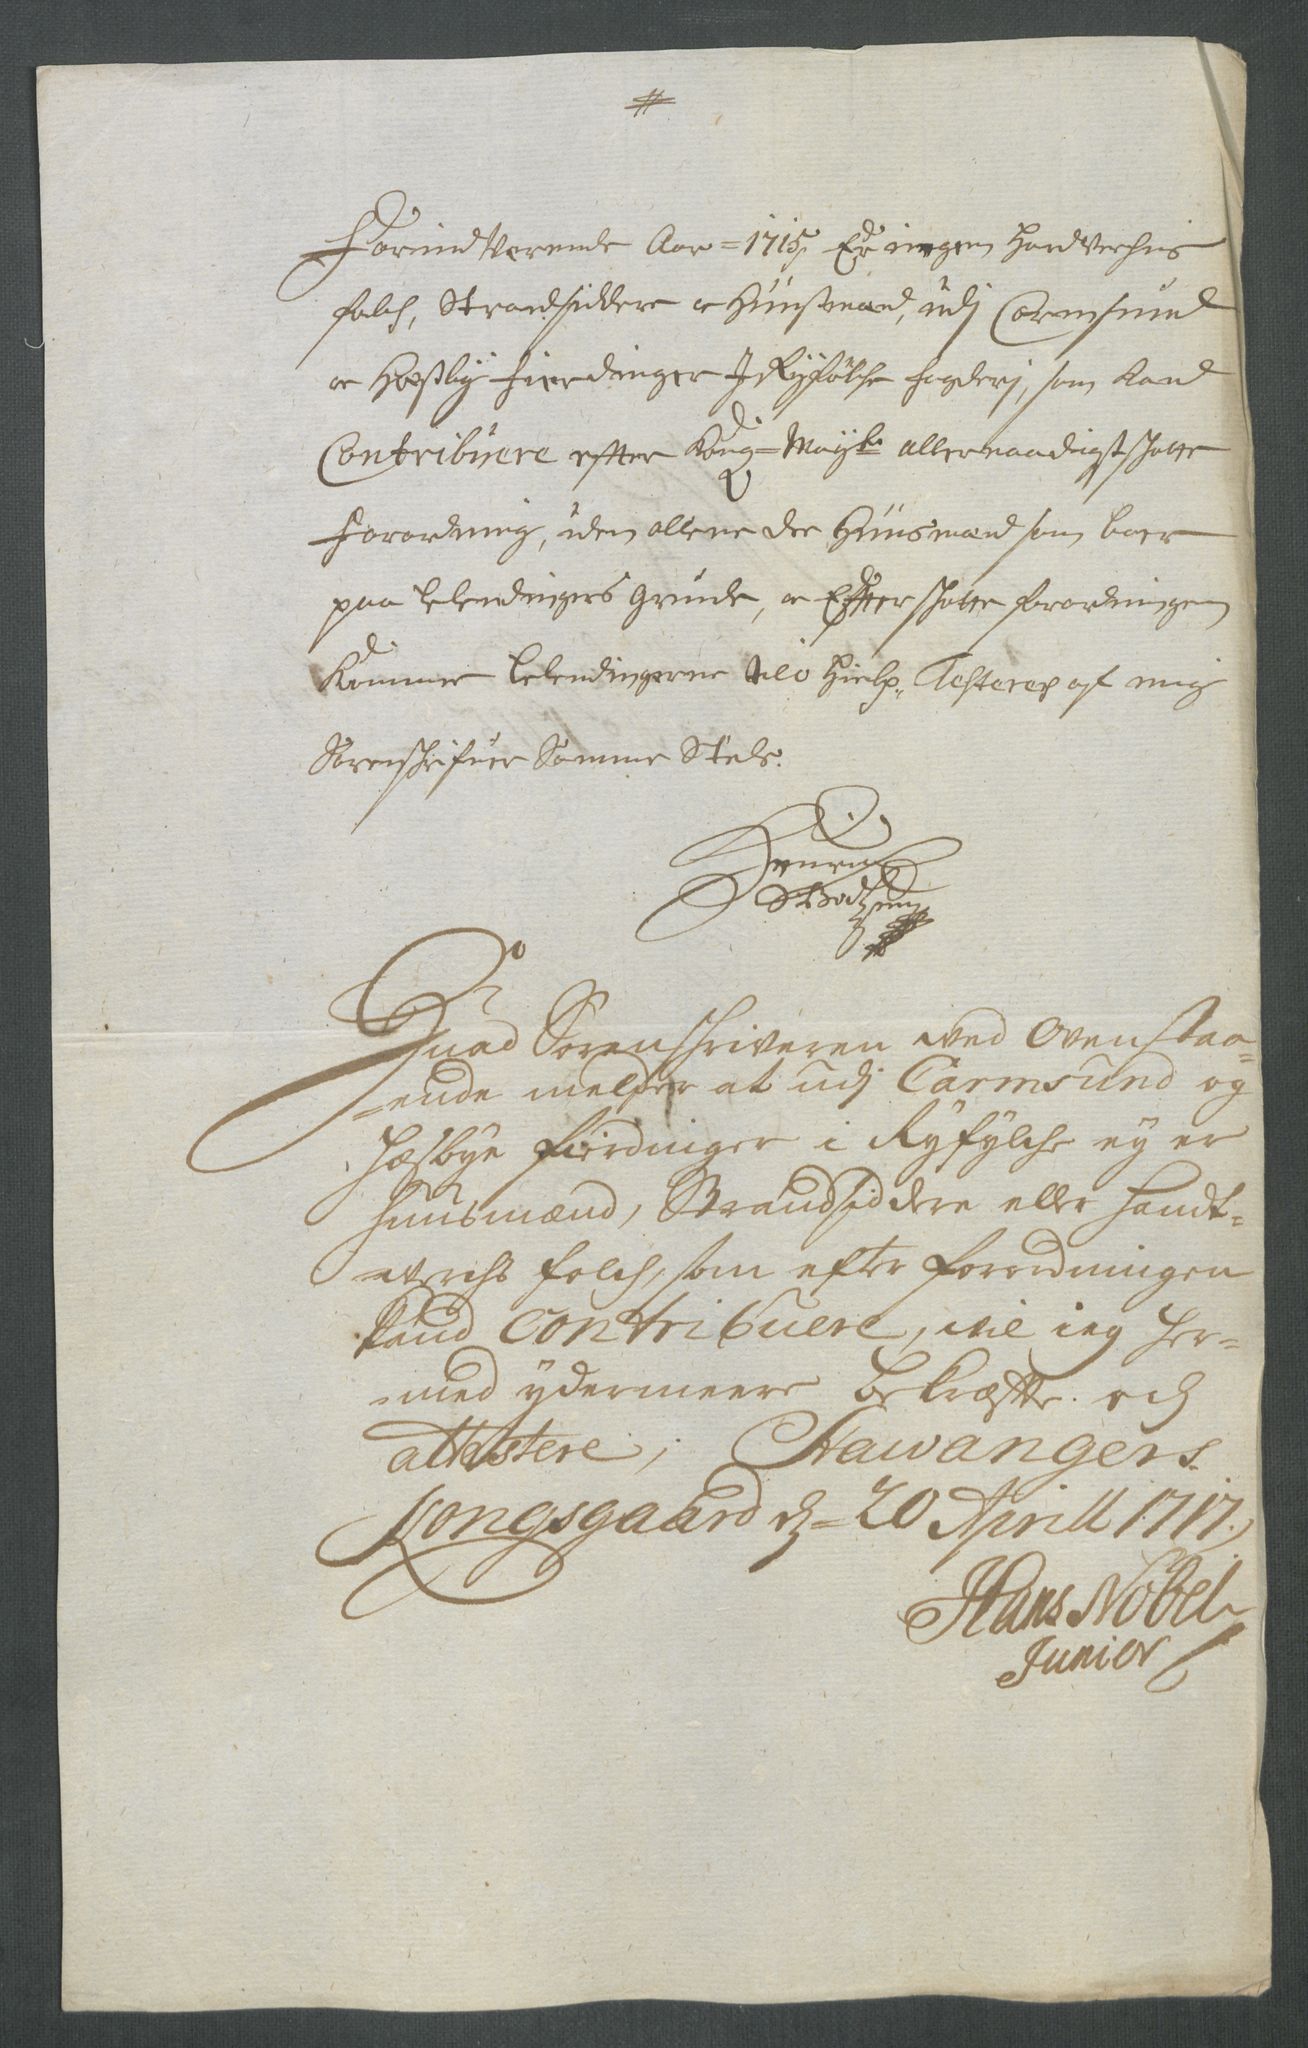 #
Forindverende Aar = 1715, Er ingen Handverchs
folch, Strandsiddere oc Huusmænd, udj Carmsund
oc Hæsby fierdinger J Ryfölche fogderj, som Kand
Contribuere efter Kong: Mayts allernaadigst skatte
forordning, uden allene de Huusmænd som boer
paa Leilendingers Grunde, oc Efter skatte forordningen
Kommer Leilendingerne till Hielp, Testerer af mig
Sorenskrifuer Samme Steds.
Henrich
Hvad Sorenschriveren wed Ovenstaa-
-ende melder at udj Carmsund og
Hæsbye Fierdinger i Ryfylche ey er
Huusmænd, Strandsiddere eller Handt-
werchs folch, som efter forordningen
kand Contribuere, wil ieg her-
-med ydermeere bekræfte och
attestere, Stawangers
Kongsgaard d. 20 Aprill 1717.
Hans Nobel
Junior